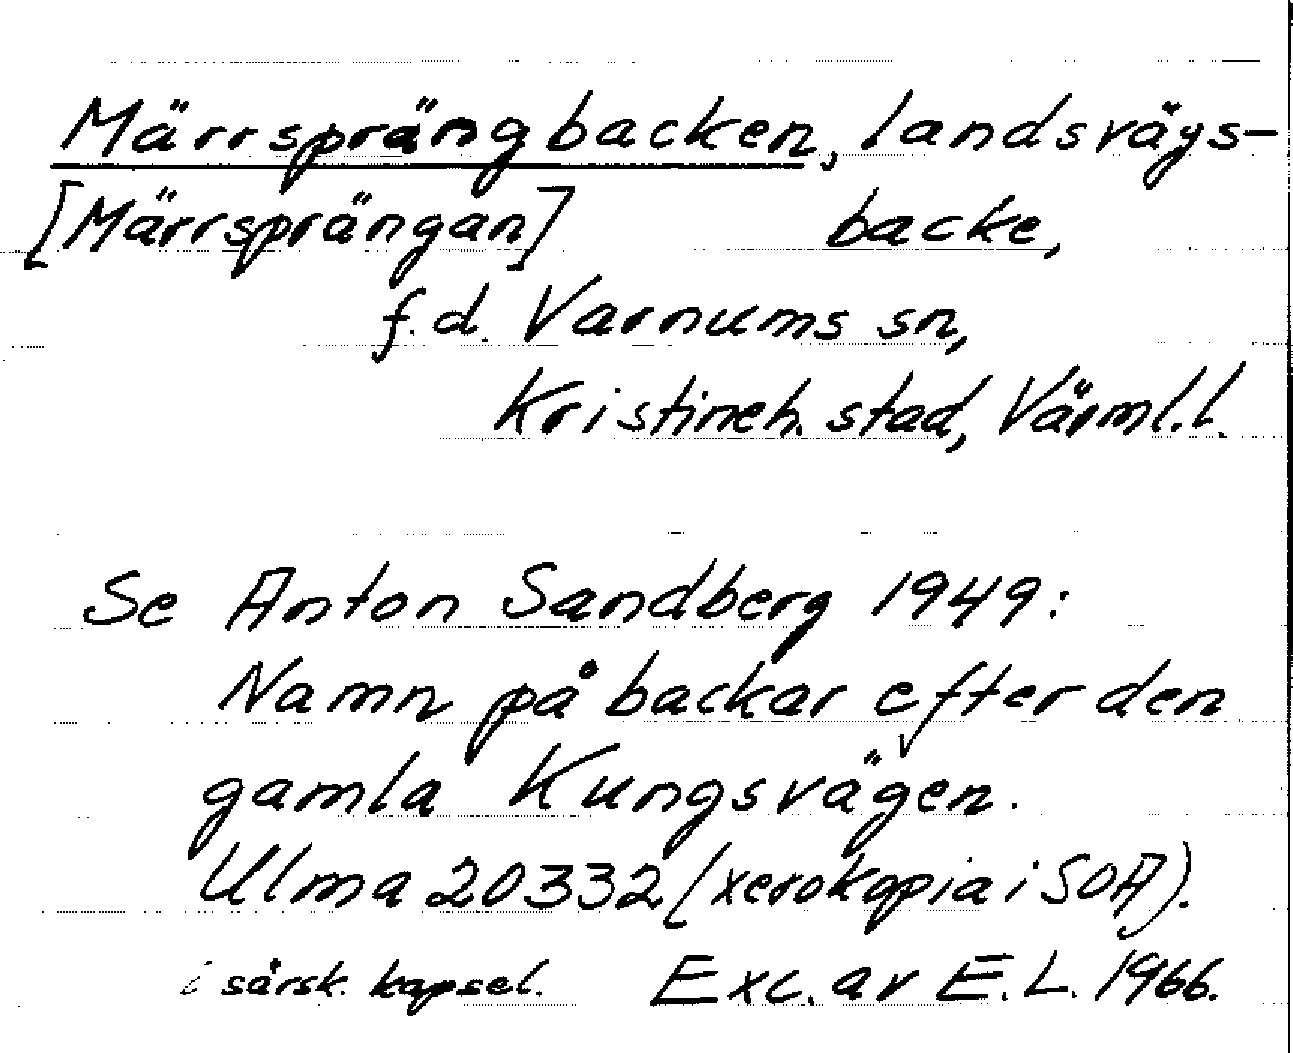 Märrsprängbacken, landsvägs-
[Märrsprängan] backe,
f.d. Varnums sn,
Kristineh. stad, Värml.l.
Se Anton Sandberg 1949:
Namn på backar efter den
gamla Kungsvägen.
Ulma 20332 (xerokopia i SOA).
i särsk. kapsel. Exc. av E.L. 1966.